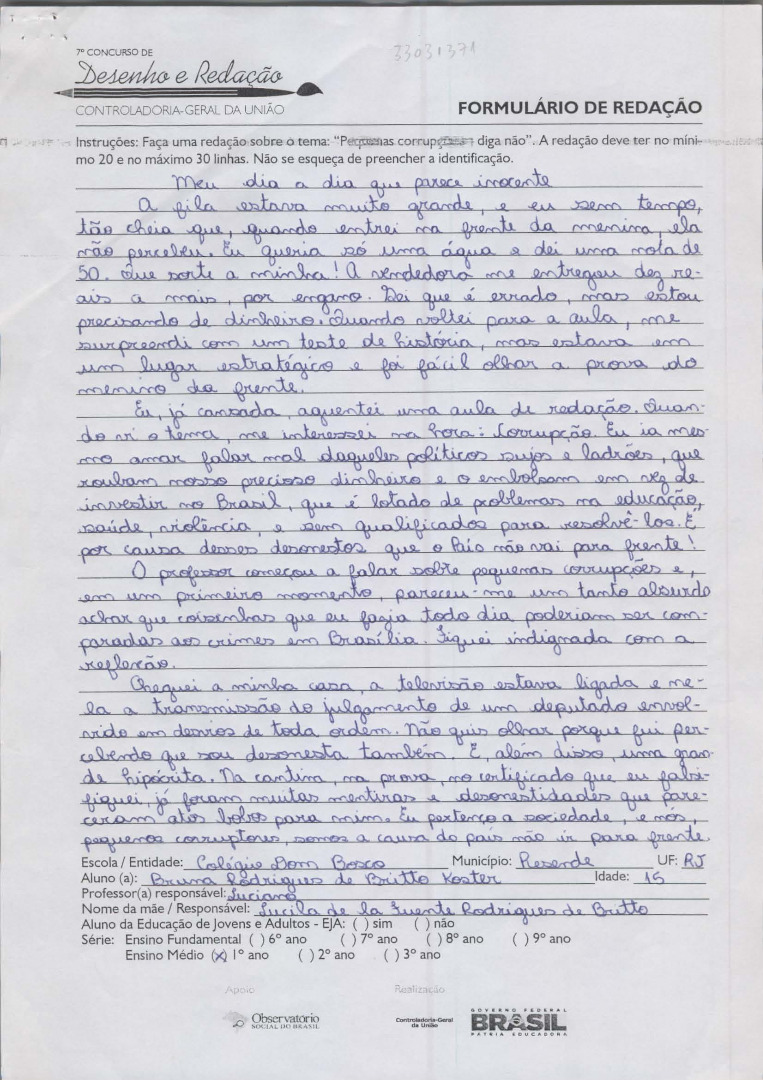 33031371
7º CONCURSO DE
Desenho e Redação
CONTROLADORIA-GERAL DA UNIÃO
FORMULÁRIO DE REDAÇÃO
Instruções: Faça uma redação sobre o tema: "Pequenas corrupções - diga não". A redação deve ter no míni-
mo 20 e no máximo 30 linhas. Não se esqueça de preencher a identificação.
Meu dia a dia que parece inocente
A fila estava muito grande, e eu sem tempo,
tão cheia que, quando entrei na frente da menina, ela
não percebeu. Eu queria só uma água e dei uma nota de
50. Que sorte a minha! A vendedora me entregou dez re-
ais a mais, por engano. Sei que é errado, mas estou
precisando de dinheiro. Quando voltei para a aula, me
surpreendi com um teste de história, mas estava em
um lugar estratégico e foi fácil olhar a prova do
menino da frente.
Eu, já cansada, aguentei uma aula de redação. Quan-
do vi o tema, me interessei na hora: Corrupção. Eu ia mes-
mo amar falar mal daqueles políticos sujos e ladrões, que
roubam nosso precioso dinheiro e o embolsam em vez de
investir no Brasil, que é lotado de problemas na educação,
saúde, violência, e sem qualificados para resolvê-los. É
por causa desses desonestos que o País não vai para frente!
O professor começou a falar sobre pequenas corrupções e,
em um primeiro momento, pareceu-me um tanto absurdo
achar que coisinhas que eu fazia todo dia poderiam ser com-
paradas aos crimes em Brasília. Fiquei indignada com a
reflexão.
Cheguei a minha casa, a televisão estava ligada e ne-
la a transmissão do julgamento de um deputado envol-
vido em desvios de toda ordem. Não quis olhar porque fui per-
cebendo que sou desonesta também. E, além disso, uma gran-
de hipócrita. Na cantina, na prova, no certificado que eu falsi-
fiquei, já foram muitas mentiras e desonestidades que pare-
ceram atos bobos para mim. Eu pertenço a sociedade, e nós,
pequenos corruptores, somos a causa do país não ir para frente.
Escola / Entidade: Colégio Dom Bosco Município: Resende UF: RJ
Aluno (a): Bruna Rodrigues de Britto Koster Idade: 15
Professor(a) responsável: Luciano
Nome da mãe / Responsável: Lucila de la Fuente Rodrigues de Britto
Aluno da Educação de Jovens e Adultos - EJA: ( ) sim ( ) não
Série: Ensino Fundamental ( ) 6º ano ( ) 7º ano ( ) 8º ano ( ) 9º ano
Ensino Médio (x) 1º ano ( ) 2º ano ( ) 3º ano
Apoio Realização
Observatório
SOCIAL DO BRASIL
Controladoria-Geral
da União
GOVERNO FEDERAL
BRASIL
PÁTRIA EDUCADORA